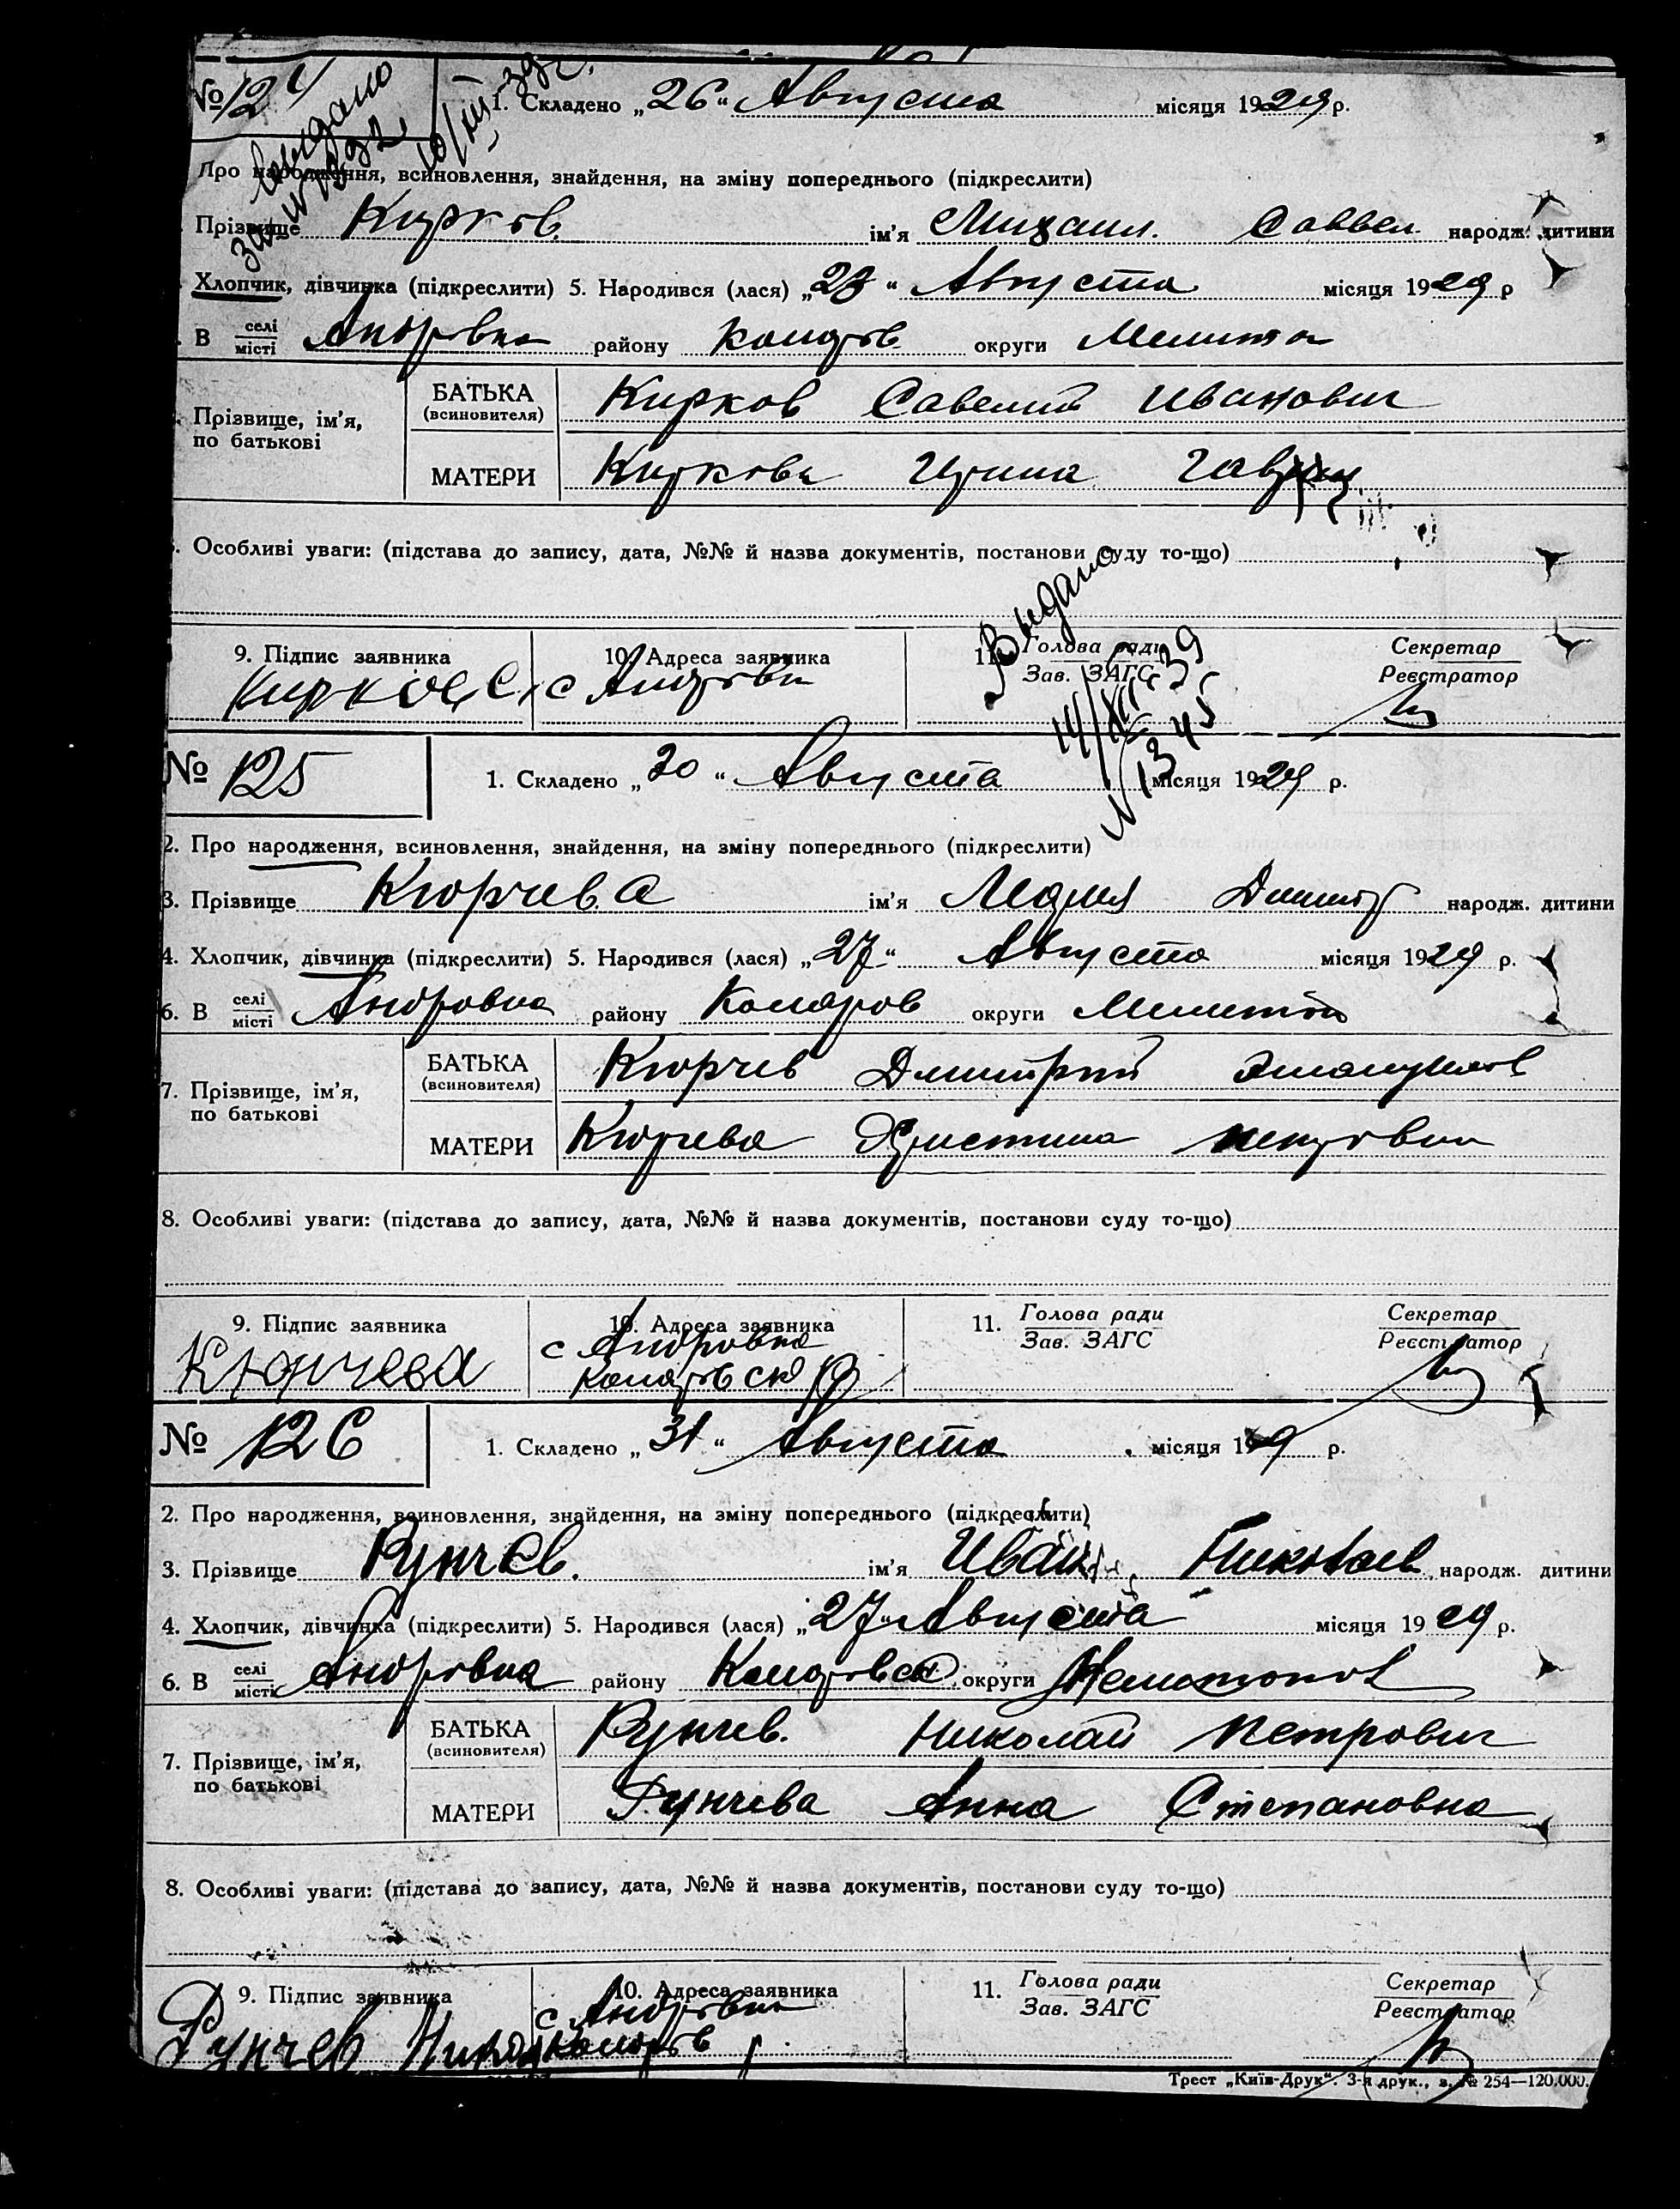 № 124
1. Складено „26“ Августа місяця 1929 р.
Выдано
Про народження, всиновлення, знайдення, на зміну попереднього (підкреслити)
Прізвище Кирков. ім'я Михаил. Саввел. народж. дитини
Хлопчик, дівчинка (підкреслити) 5. Народився (лася) „23“ Августа місяця 1929 р
В селі/місті Андровка району округи Мелитоп
Прізвище, ім'я, по батькові
БАТЬКА (всиновителя) Кирков Савелий Иванович
МАТЕРИ Киркова Ирина
Особливі уваги: (підстава до запису, дата, №№ й назва документів, постанови суду то-що)
Выдано
14/XII-39
N 1345
9. Підпис заявника 10. Адреса заявника 11. Голова ради Секретар
Зав. ЗАГС Реєстратор
Кирков С. с Андровка
№ 125
1. Складено „30“ Августа місяця 1929 р.
2. Про народження, всиновлення, знайдення, на зміну попереднього (підкреслити)
3. Прізвище Кюрчева ім'я Лидия Димитр народж. дитини
4. Хлопчик, дівчинка (підкреслити) 5. Народився (лася) „27“ Августа місяця 1929 р.
6. В селі/місті Андровка району Комаров округи Мелитоп
7. Прізвище, ім'я, по батькові
БАТЬКА (всиновителя) Кюрчев Димитрий Эмануилов
МАТЕРИ Кюрчева Христина Петровна
8. Особливі уваги: (підстава до запису, дата, №№ й назва документів, постанови суду то-що)
9. Підпис заявника 10. Адреса заявника 11. Голова ради Секретар
Зав. ЗАГС Реєстратор
Кюрчева с Андровка
№ 126
1. Складено „31“ Августа місяця 1929 р.
2. Про народження, всиновлення, знайдення, на зміну попереднього (підкреслити)
3. Прізвище Рунчев. ім'я Иван Николаев народж. дитини
4. Хлопчик, дівчинка (підкреслити) 5. Народився (лася) „27“ Августа місяця 1929 р.
6. В селі/місті Андровка району округи
7. Прізвище, ім'я, по батькові
БАТЬКА (всиновителя) Рунчев. Николай Петрович
МАТЕРИ Рунчева Анна Степановна
8. Особливі уваги: (підстава до запису, дата, №№ й назва документів, постанови суду то-що)
9. Підпис заявника 10. Адреса заявника 11. Голова ради Секретар
Зав. ЗАГС Реєстратор
Рунчев с Андровка
Трест „Київ-Друк“. 3-я друк., з. № 254—120.000.